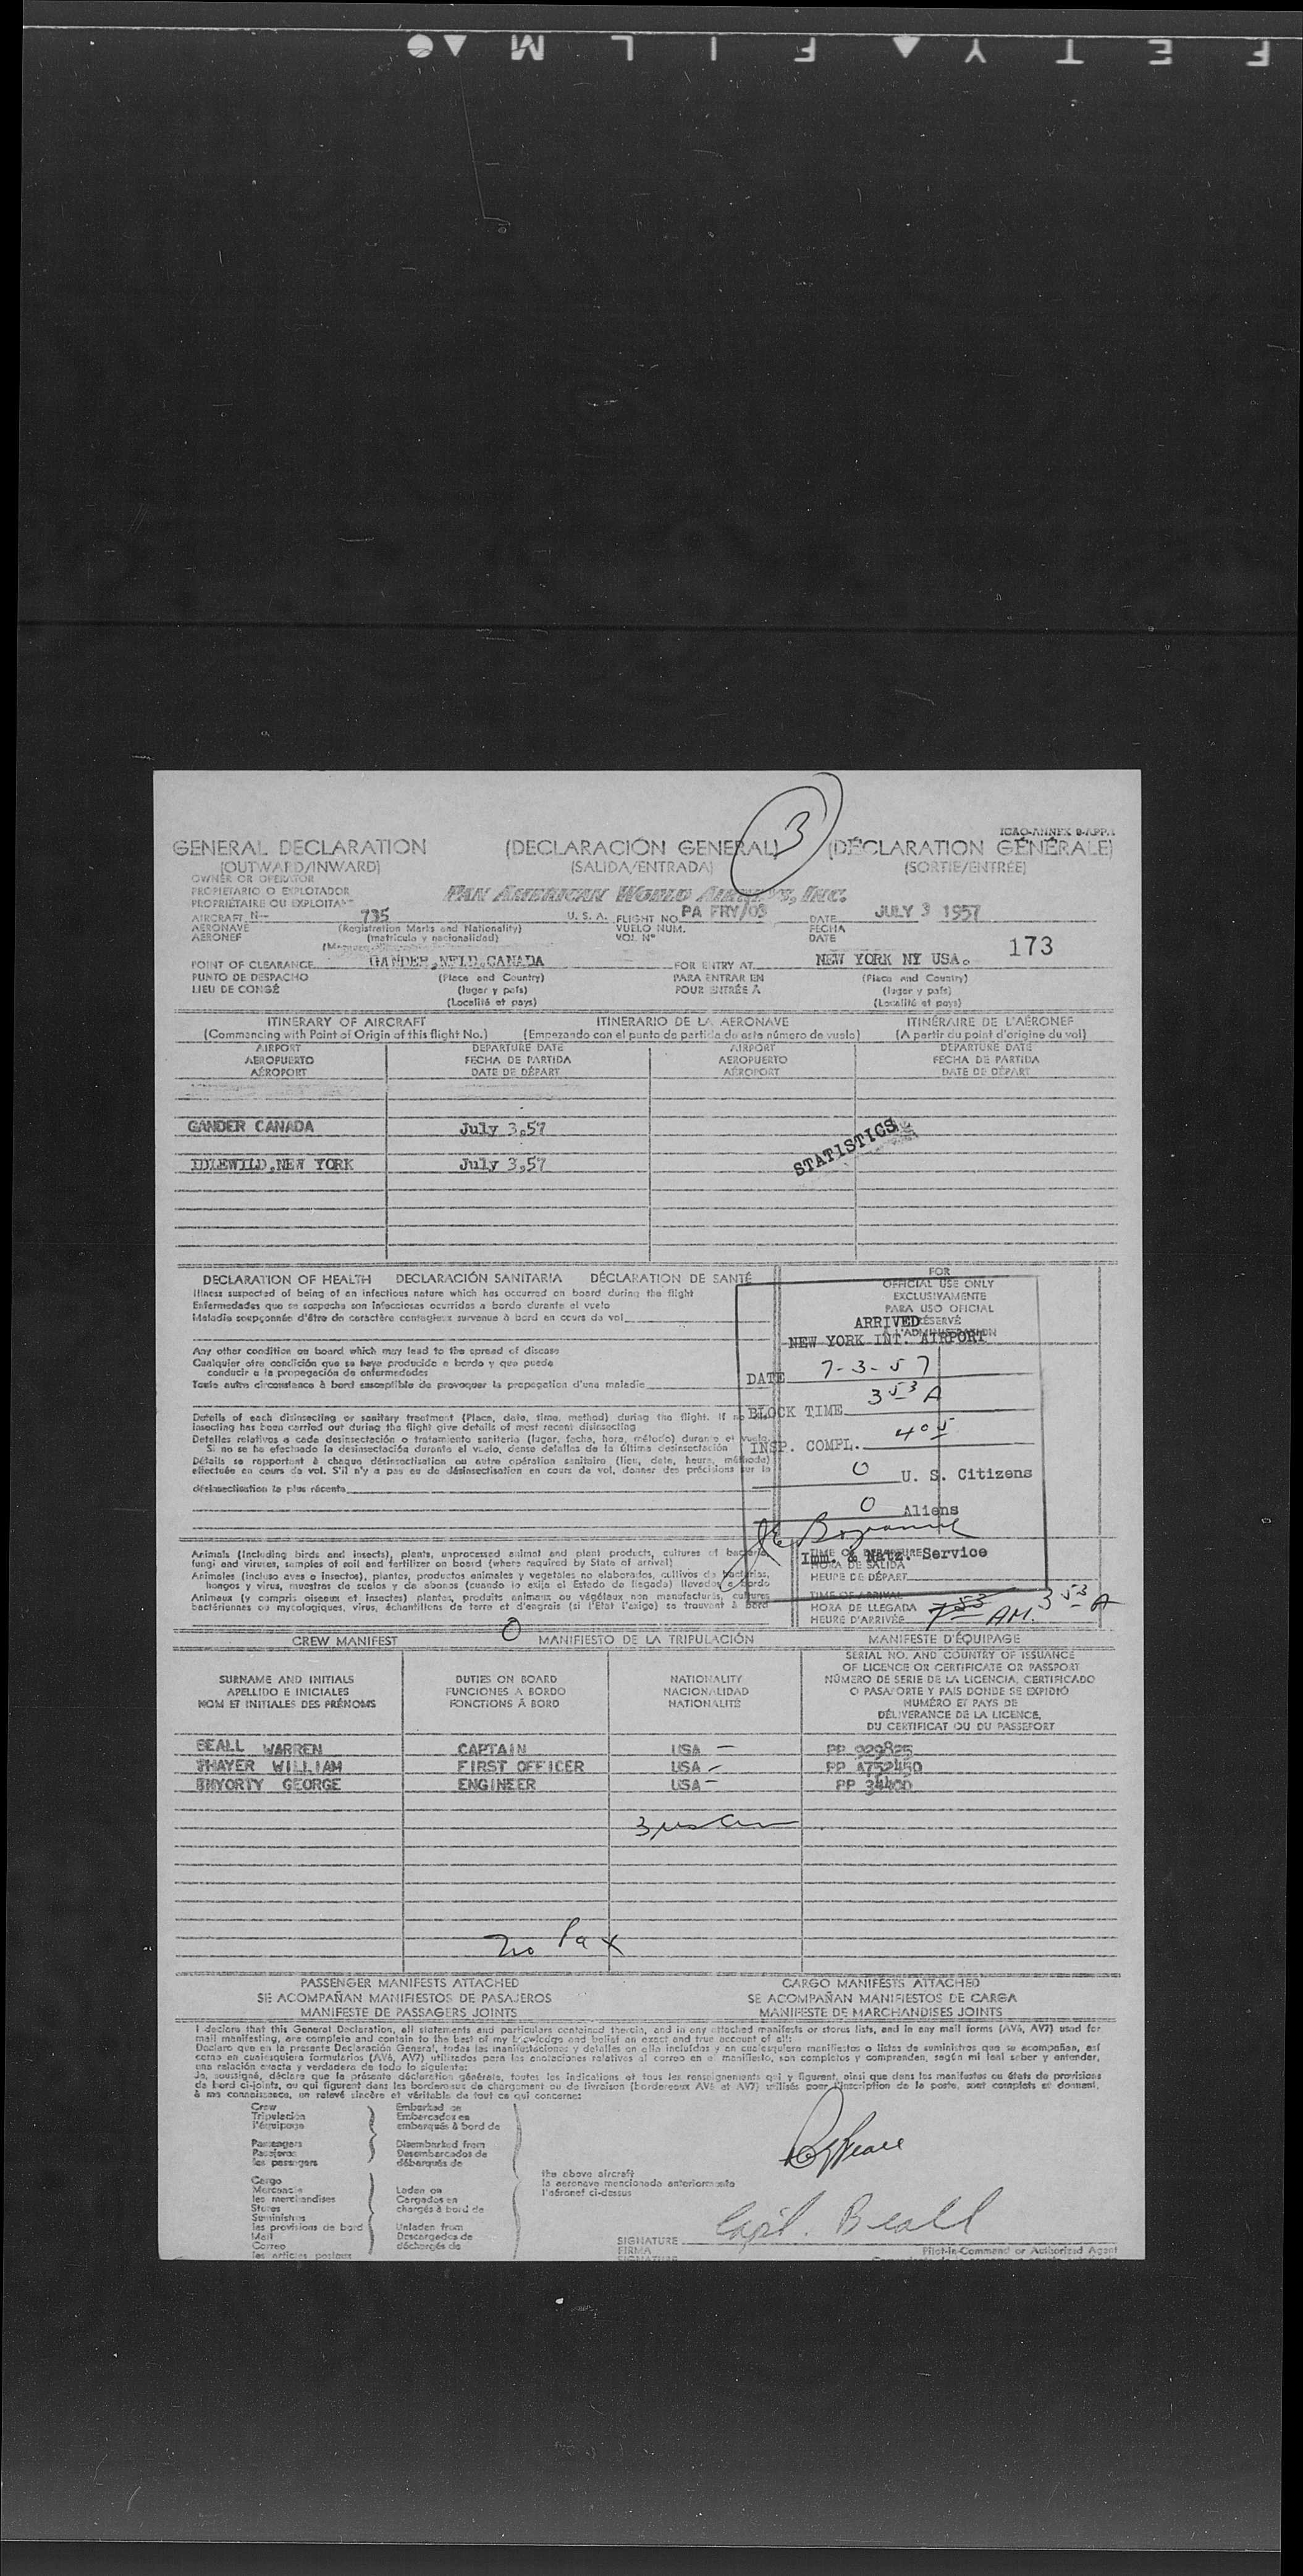 SAFETY FILM
3
ICAO-ANNEX 9-APP.1
GENERAL DECLARATION (DECLARACIÓN GENERAL) (DÉCLARATION GÉNÉRALE)
(OUTWARD/INWARD) (SALIDA/ENTRADA) (SORTIE/ENTRÉE)
OWNER OR OPERATOR
PROPIETARIO O EXPLOTADOR PAN AMERICAN WORLD AIRWAYS, INC.
PROPRIÉTAIRE OU EXPLOITANT
AIRCRAFT N- 735 U. S. A. FLIGHT NO. PA FRY/03 DATE JULY 3 1957
AERONAVE (Registration Marks and Nationality) VUELO NUM. FECHA
AÉRONEF (matrícula y nacionalidad) VOL Nº DATE
173
POINT OF CLEARANCE GANDER,NFLD.CANADA FOR ENTRY AT NEW YORK NY USA.
PUNTO DE DESPACHO (Place and Country) PARA ENTRAR EN (Place and Country)
LIEU DE CONGÉ (lugar y país) POUR ENTRÉE À (lugar y país)
(Localité et pays) (Localité et pays)
ITINERARY OF AIRCRAFT ITINERARIO DE LA AERONAVE ITINÉRAIRE DE L'AÉRONEF
(Commencing with Point of Origin of this flight No.) (Empezando con el punto de partida de este número de vuelo) (A partir du point d'origine du vol)
AIRPORT DEPARTURE DATE AIRPORT DEPARTURE DATE
AEROPUERTO FECHA DE PARTIDA AEROPUERTO FECHA DE PARTIDA
AÉROPORT DATE DE DÉPART AÉROPORT DATE DE DÉPART
GANDER CANADA July 3,57
STATISTICS
IDLEWILD,NEW YORK July 3,57
DECLARATION OF HEALTH DECLARACIÓN SANITARIA DÉCLARATION DE SANTÉ
Illness suspected of being of an infectious nature which has occurred on board during the flight
Enfermedades que se sospecha son infecciosas ocurridas a bordo durante el vuelo
Maladie soupçonnée d'être de caractère contagieux survenue à bord en cours de vol
Any other condition on board which may lead to the spread of disease
Cualquier otra condición que se haya producido a bordo y que puede
conducir a la propagación de enfermedades
Toute autre circonstance à bord susceptible de provoquer la propagation d'une maladie
Details of each disinsecting or sanitary treatment (Place, date, time, method) during the flight. If no dis-
insecting has been carried out during the flight give details of most recent disinsecting
Detalles relativos a cada desinsectación o tratamiento sanitario (lugar, fecha, hora, método) durante el vuelo.
Si no se ha efectuado la desinsectación durante el vuelo, dense detalles de la última desinsectación
Détails se rapportant à chaque désinsectisation ou autre opération sanitaire (lieu, date, heure, méthode)
effectuée en cours de vol. S'il n'y a pas eu de désinsectisation en cours de vol, donner des précisions sur la
désinsectisation la plus récente
FOR
OFFICIAL USE ONLY
EXCLUSIVAMENTE
PARA USO OFICIAL
RÉSERVÉ
L'ADMINISTRATION
ARRIVED
NEW YORK INT. AIRPORT
DATE 7-3-57
BLOCK TIME 353 A
INSP. COMPL. 405
0 U. S. Citizens
0 Aliens
Imm. & Natz. Service
Animals (including birds and insects), plants, unprocessed animal and plant products, cultures of bacteria,
fungi and viruses, samples of soil and fertilizer on board (where required by State of arrival)
Animales (incluso aves o insectos), plantas, productos animales y vegetales no elaborados, cultivos de bacterias,
hongos y virus, muestras de suelos y de abonos (cuando lo exija el Estado de llegada) llevados a bordo
Animaux (y compris oiseaux et insectes) plantes, produits animaux ou végétaux non manufacturés, cultures
bactériennes ou mycologiques, virus, échantillons de terre et d'engrais (si l'État l'exige) se trouvant à bord
0
TIME OF DEPARTURE
HORA DE SALIDA
HEURE DE DÉPART
TIME OF ARRIVAL
HORA DE LLEGADA 753 AM. 353 A
HEURE D'ARRIVÉE
CREW MANIFEST MANIFIESTO DE LA TRIPULACIÓN MANIFESTE D'ÉQUIPAGE
SURNAME AND INITIALS
APELLIDO E INICIALES
NOM ET INITIALES DES PRÉNOMS
DUTIES ON BOARD
FUNCIONES A BORDO
FONCTIONS À BORD
NATIONALITY
NACIONALIDAD
NATIONALITÉ
SERIAL NO. AND COUNTRY OF ISSUANCE
OF LICENCE OR CERTIFICATE OR PASSPORT
NÚMERO DE SERIE DE LA LICENCIA, CERTIFICADO
O PASAPORTE Y PAÍS DONDE SE EXPIDIÓ
NUMÉRO ET PAYS DE
DÉLIVRANCE DE LA LICENCE,
DU CERTIFICAT OU DU PASSEPORT
BEALL WARREN CAPTAIN USA - PP 929825
THAYER WILLIAM FIRST OFFICER USA - PP A752450
GEORGE ENGINEER USA - PP 34400
3
No Pax
PASSENGER MANIFESTS ATTACHED CARGO MANIFESTS ATTACHED
SE ACOMPAÑAN MANIFIESTOS DE PASAJEROS SE ACOMPAÑAN MANIFIESTOS DE CARGA
MANIFESTE DE PASSAGERS JOINTS MANIFESTE DE MARCHANDISES JOINTS
I declare that this General Declaration, all statements and particulars contained therein, and in any attached manifests or stores lists, and in any mail forms (AV6, AV7) used for
mail manifesting, are complete and contain to the best of my knowledge and belief an exact and true account of all:
Declaro que en la presente Declaración General, todas las manifestaciones y detalles en ella incluídos y en cualesquiera manifiestos o listas de suministros que se acompañan, así
como en cualesquiera formularios (AV6, AV7) utilizados para las anotaciones relativas al correo en el manifiesto, son completos y comprenden, según mi leal saber y entender,
una relación exacta y verdadera de todo lo siguiente:
Je, soussigné, déclare que la présente déclaration générale, toutes les indications et tous les renseignements qui y figurent, ainsi que dans les manifestes ou états de provisions
de bord ci-joints, ou qui figurent dans les bordereaux de chargement ou de livraison (bordereaux AV6 et AV7) utilisés pour l'inscription de la poste, sont complets et donnent,
à ma connaissance, un relevé sincère et véritable de tout ce qui concerne:
Crew
Tripulación
l'équipage
Passengers
Pasajeros
les passagers
Cargo
Mercancía
les marchandises
Stores
Suministros
les provisions de bord
Mail
Correo
les articles postaux
Embarked on
Embarcados en
embarqués à bord de
Disembarked from
Desembarcados de
débarqués de
Laden on
Cargados en
chargés à bord de
Unladen from
Descargados de
déchargés de
the above aircraft
la aeronave mencionada anteriormente
l'aéronef ci-dessus
SIGNATURE Capt. Beall
FIRMA Pilot-in-Command or Authorized Agent
SIGNATURE